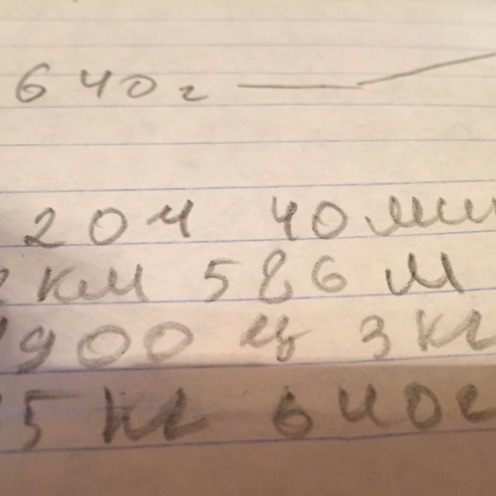 640г
20ч 40 мин
км 586 м
900 ц 3 кг
5 кг 640г